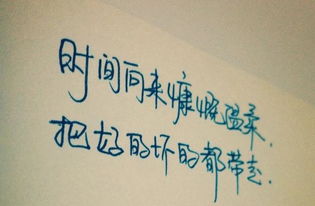 时间向来慷慨温柔，
把好的坏的都带走.